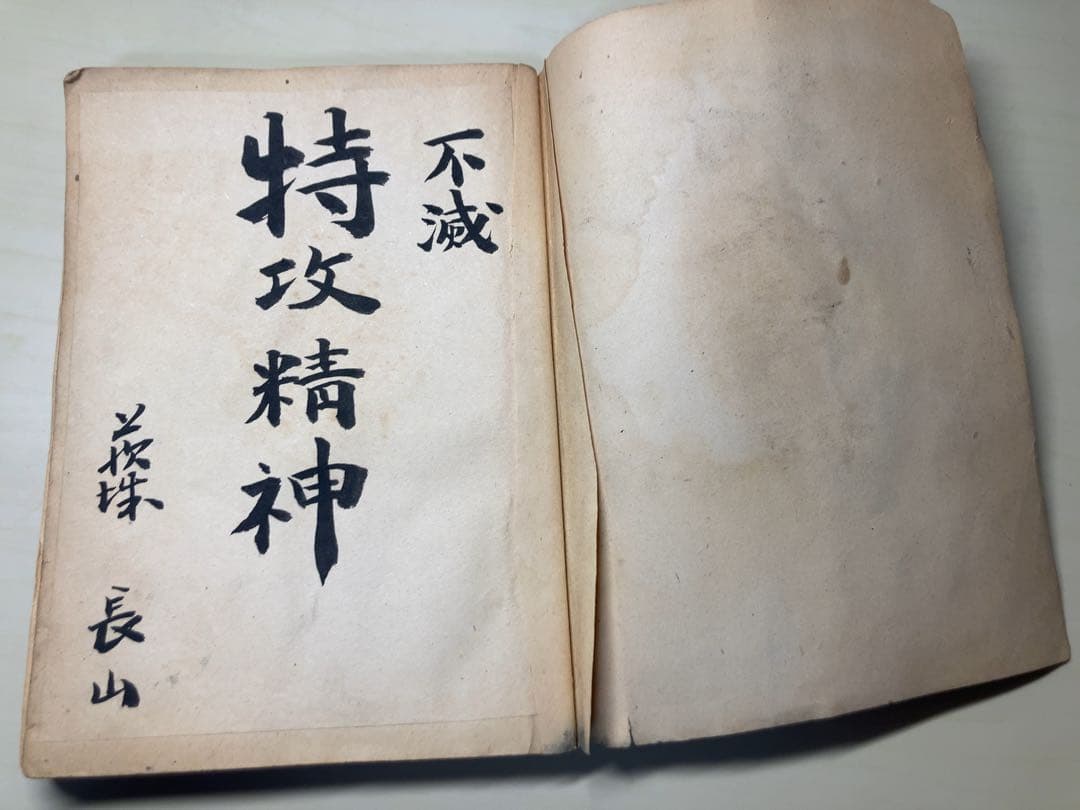 不滅
特攻精神
長山